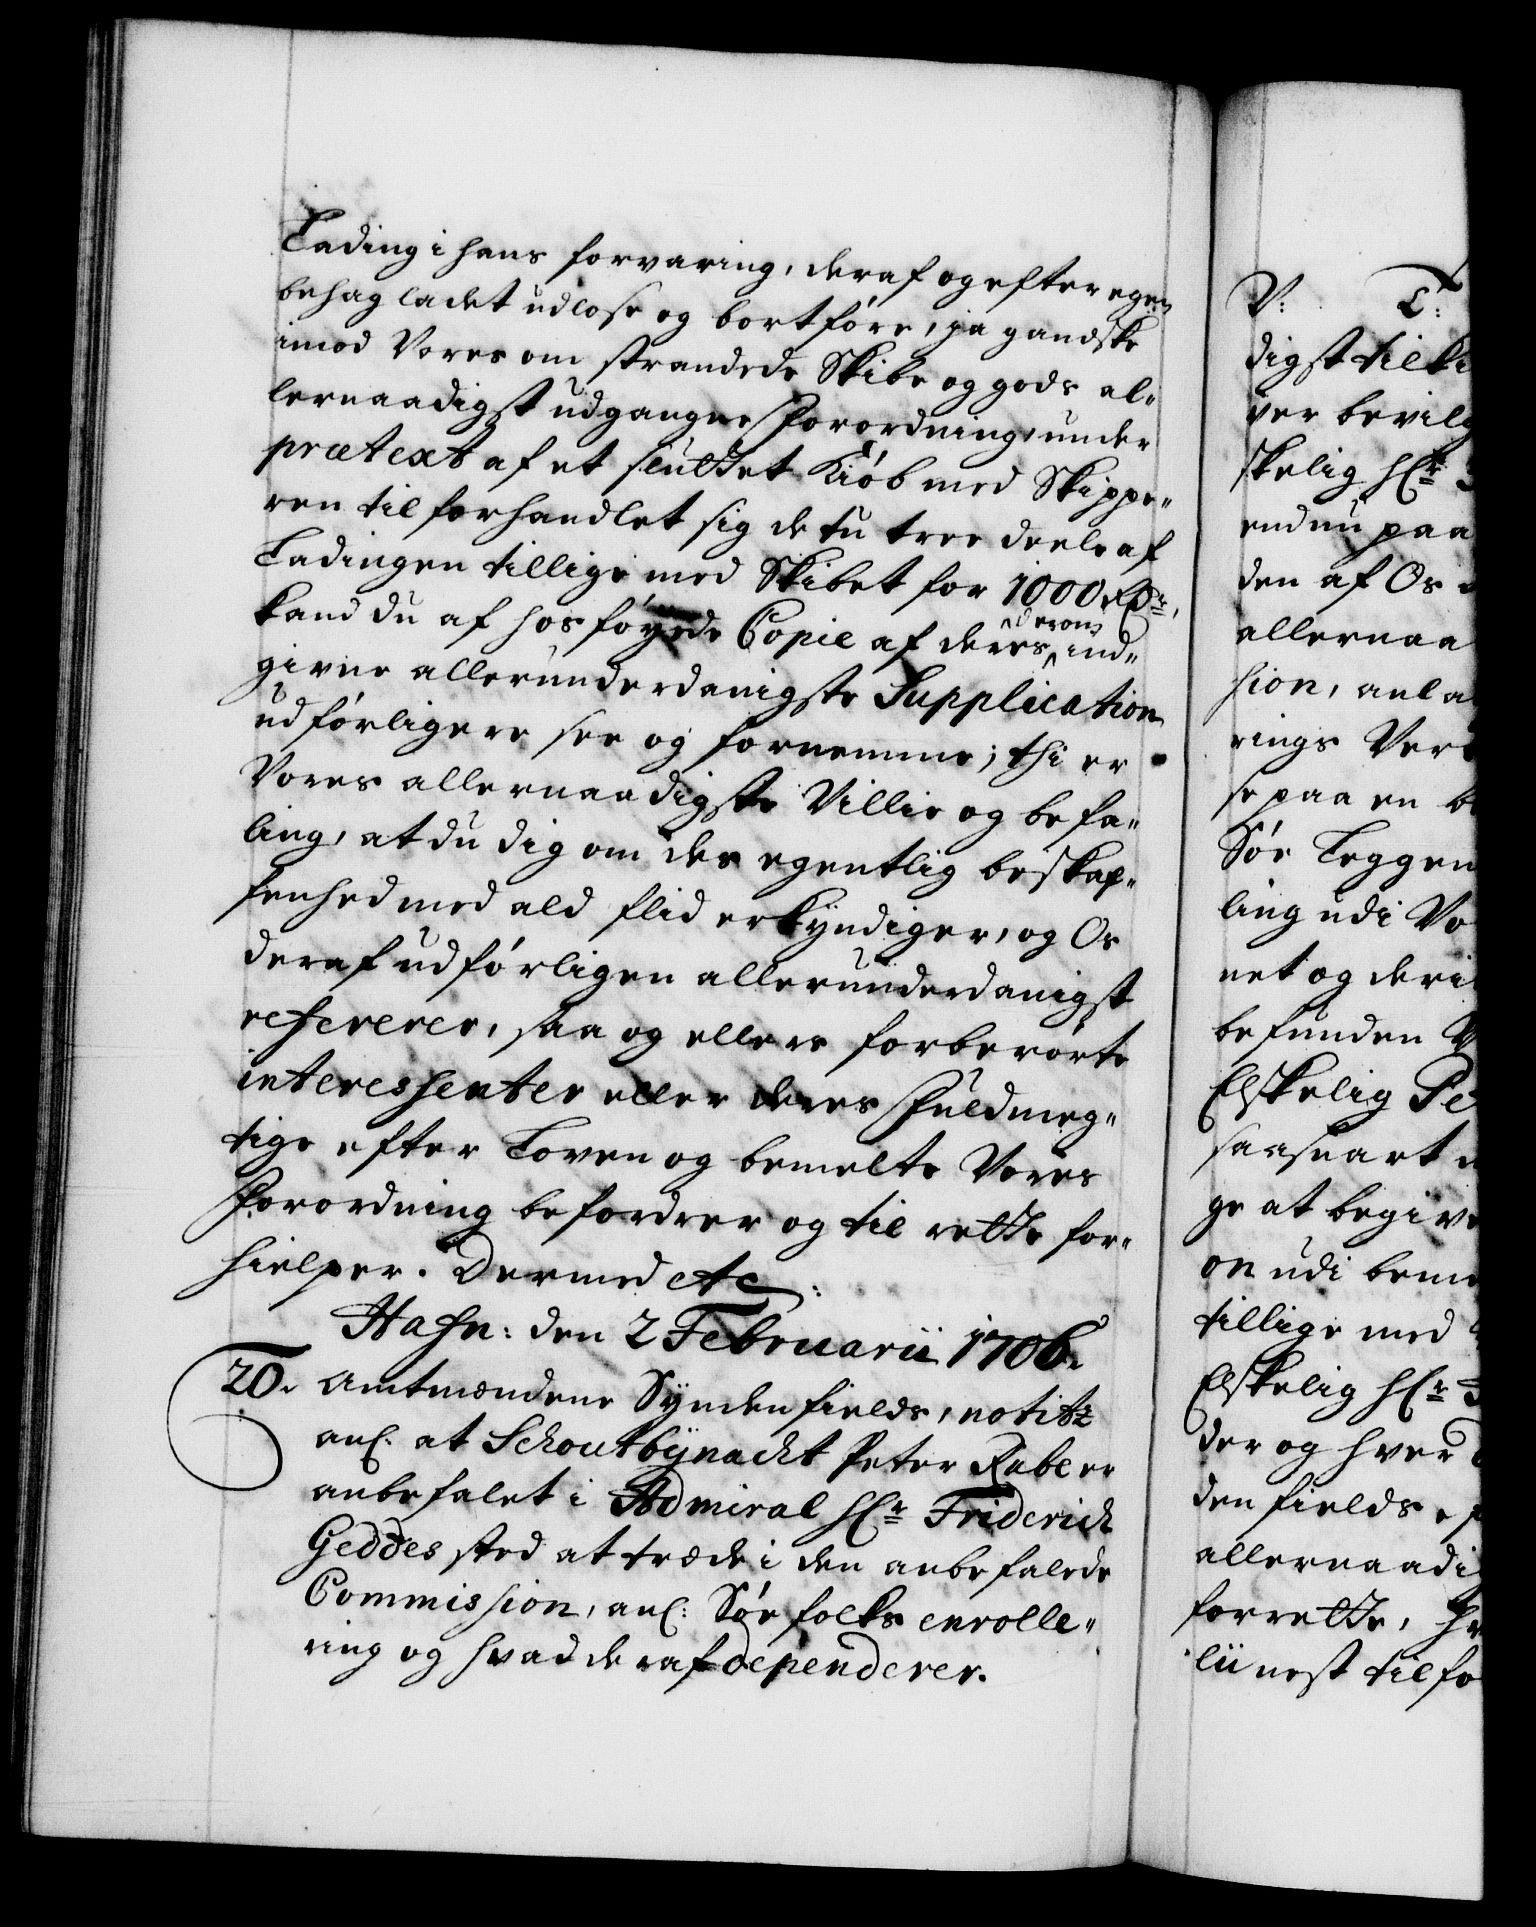 Lading i hans forvaring, deraf og efter egen
behag ladet udlose og bortføre, ja gandske
imod Vores om strandede Skibe og gods al-
lernaadigst udgangne Forordning, under
prætext af et sluttet Kiøb med Skippe-
ren til forhandlet sig de tu tree deele af
Ladingen tillige med Skibet for 1000 Rdr,
kand du af hosføyede Copie af deres derom ind-
givne allerunderdanigste Supplication
udførligere see og fornemme; thi er
Vores allernaadigste Villie og befa-
ling, at du dig om des egentlig beskaf-
fenhed med ald flid erkyndiger, og Os
deraf udførligen allerunderdanigst
refererer, saa og ellers forberørte
interessenter eller deres Fuldmeg-
tige efter Loven og bemelte Vores
Forordning befordrer og til rette for-
hielper. Dermed etc:
Hafn: den 2 Februarii 1706.
20. Amtmændene Synden fields, notitz
anl. at Schoutbÿnacht Peter Rabe er
anbefalet i Admiral Hr. Friderich
Geddes sted at træde i den anbefalede
Commission, anl: Søe folks enrolle-
ring og hvad deraf dependerer.
V: L:
digst tilki
ver bevilg
skelig Hr.
endnu paa
den af Os
allernaa
sion, anla
rings Ver
se paa en b
Søe Leggen
ling udi Vo
net og deri
befunden V
Elskelig Pe
saasnart
ge at begive
on udi beme
tillige med
Elskelig Hr.
der og hver
den fields,
allernaadi
forrette, h
lii nest tilfo